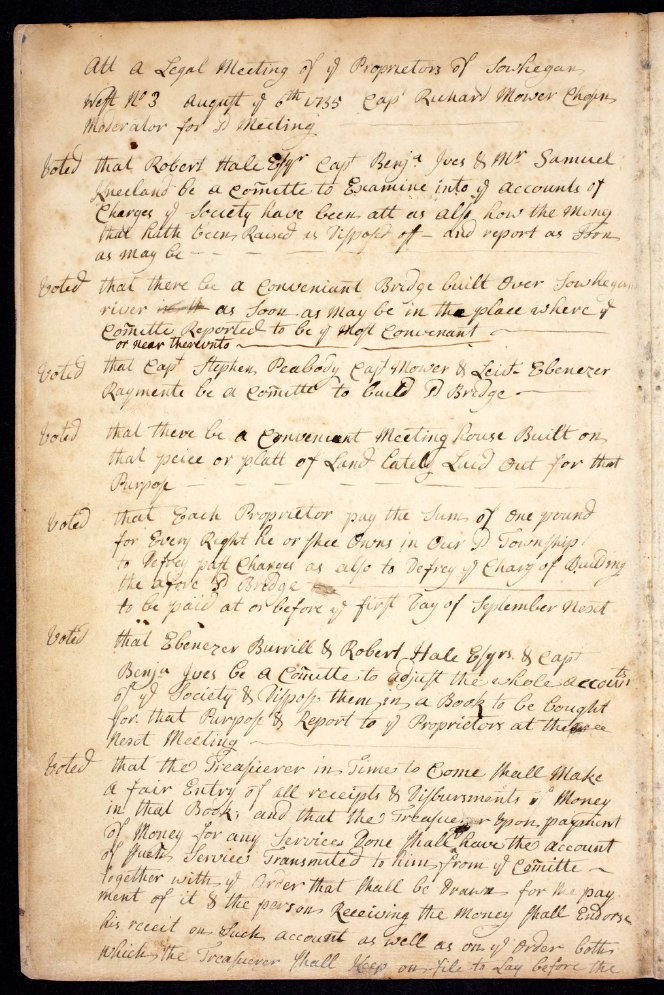 Att a Legal Meeting of ye Proprietors of Sowhegan
West No 3 August ye 6th 1735 Capt Richard Mower Chosen
Moderator for sd Meeting
Voted that Robert Hale Esqr Capt Benja Ives & Mr Samuel
Kneeland be a Comitte to Examine into ye accounts of
Charges ye Society have been att as also how the Mony
that hath been Raised is Disposed of - and report as Soon
as may be
Voted that there be a Conveniant Bridge built Over Sowhegan
river as Soon as may be in the place where ye
Comitte Reported to be ye Most Convenant
or near thereunto
Voted that Capt Stephen Peabody Capt Mower & Leit Ebenezer
Rayment be a Comitte to build sd Bridge
Voted that there be a Conveneant Meeting house Built on
that peice or platt of Land lately Laid Out for that
Purpose
Voted that Each Proprietor pay the Sum of One pound
for Every Right he or shee Owns in Our sd Township
to Defrey past Charges as also to Defrey ye Charg of Building
the afore sd Bridge
to be paid at or before ye first Day of September Next
Voted that Ebenezer Burrill & Robert Hale Esqrs & Capt
Benja Ives be a Comitte to adjust the whole accounts
of ye Society & Dispose them in a Book to be bought
for that Purpose & Report to ye Proprietors at the
Next Meeting
Voted that the Treasuerer in Time to Come Shall Make
a fair Entry of all receipts & Disbursments Money
in that Book and that the Treasuerer Upon payment
of Money for any Services Done Shall have the account
of Such Service Transmited to him from ye Comitte
together with ye Order that Shall be Drawn for the pay
ment of it & the person Receiving the Money Shall Endorse
his receit on Such account as well as on ye Order both
which the Treasuerer Shall Keep on file to Lay before the